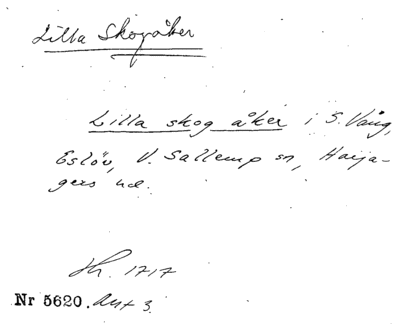 Lilla Skogåker
Lilla skog åker i S. Vång,
Eslöv, V. Sallerup sn, Harja-
gers hd.
Sk. 1717
Nr 5620. Akt 3.